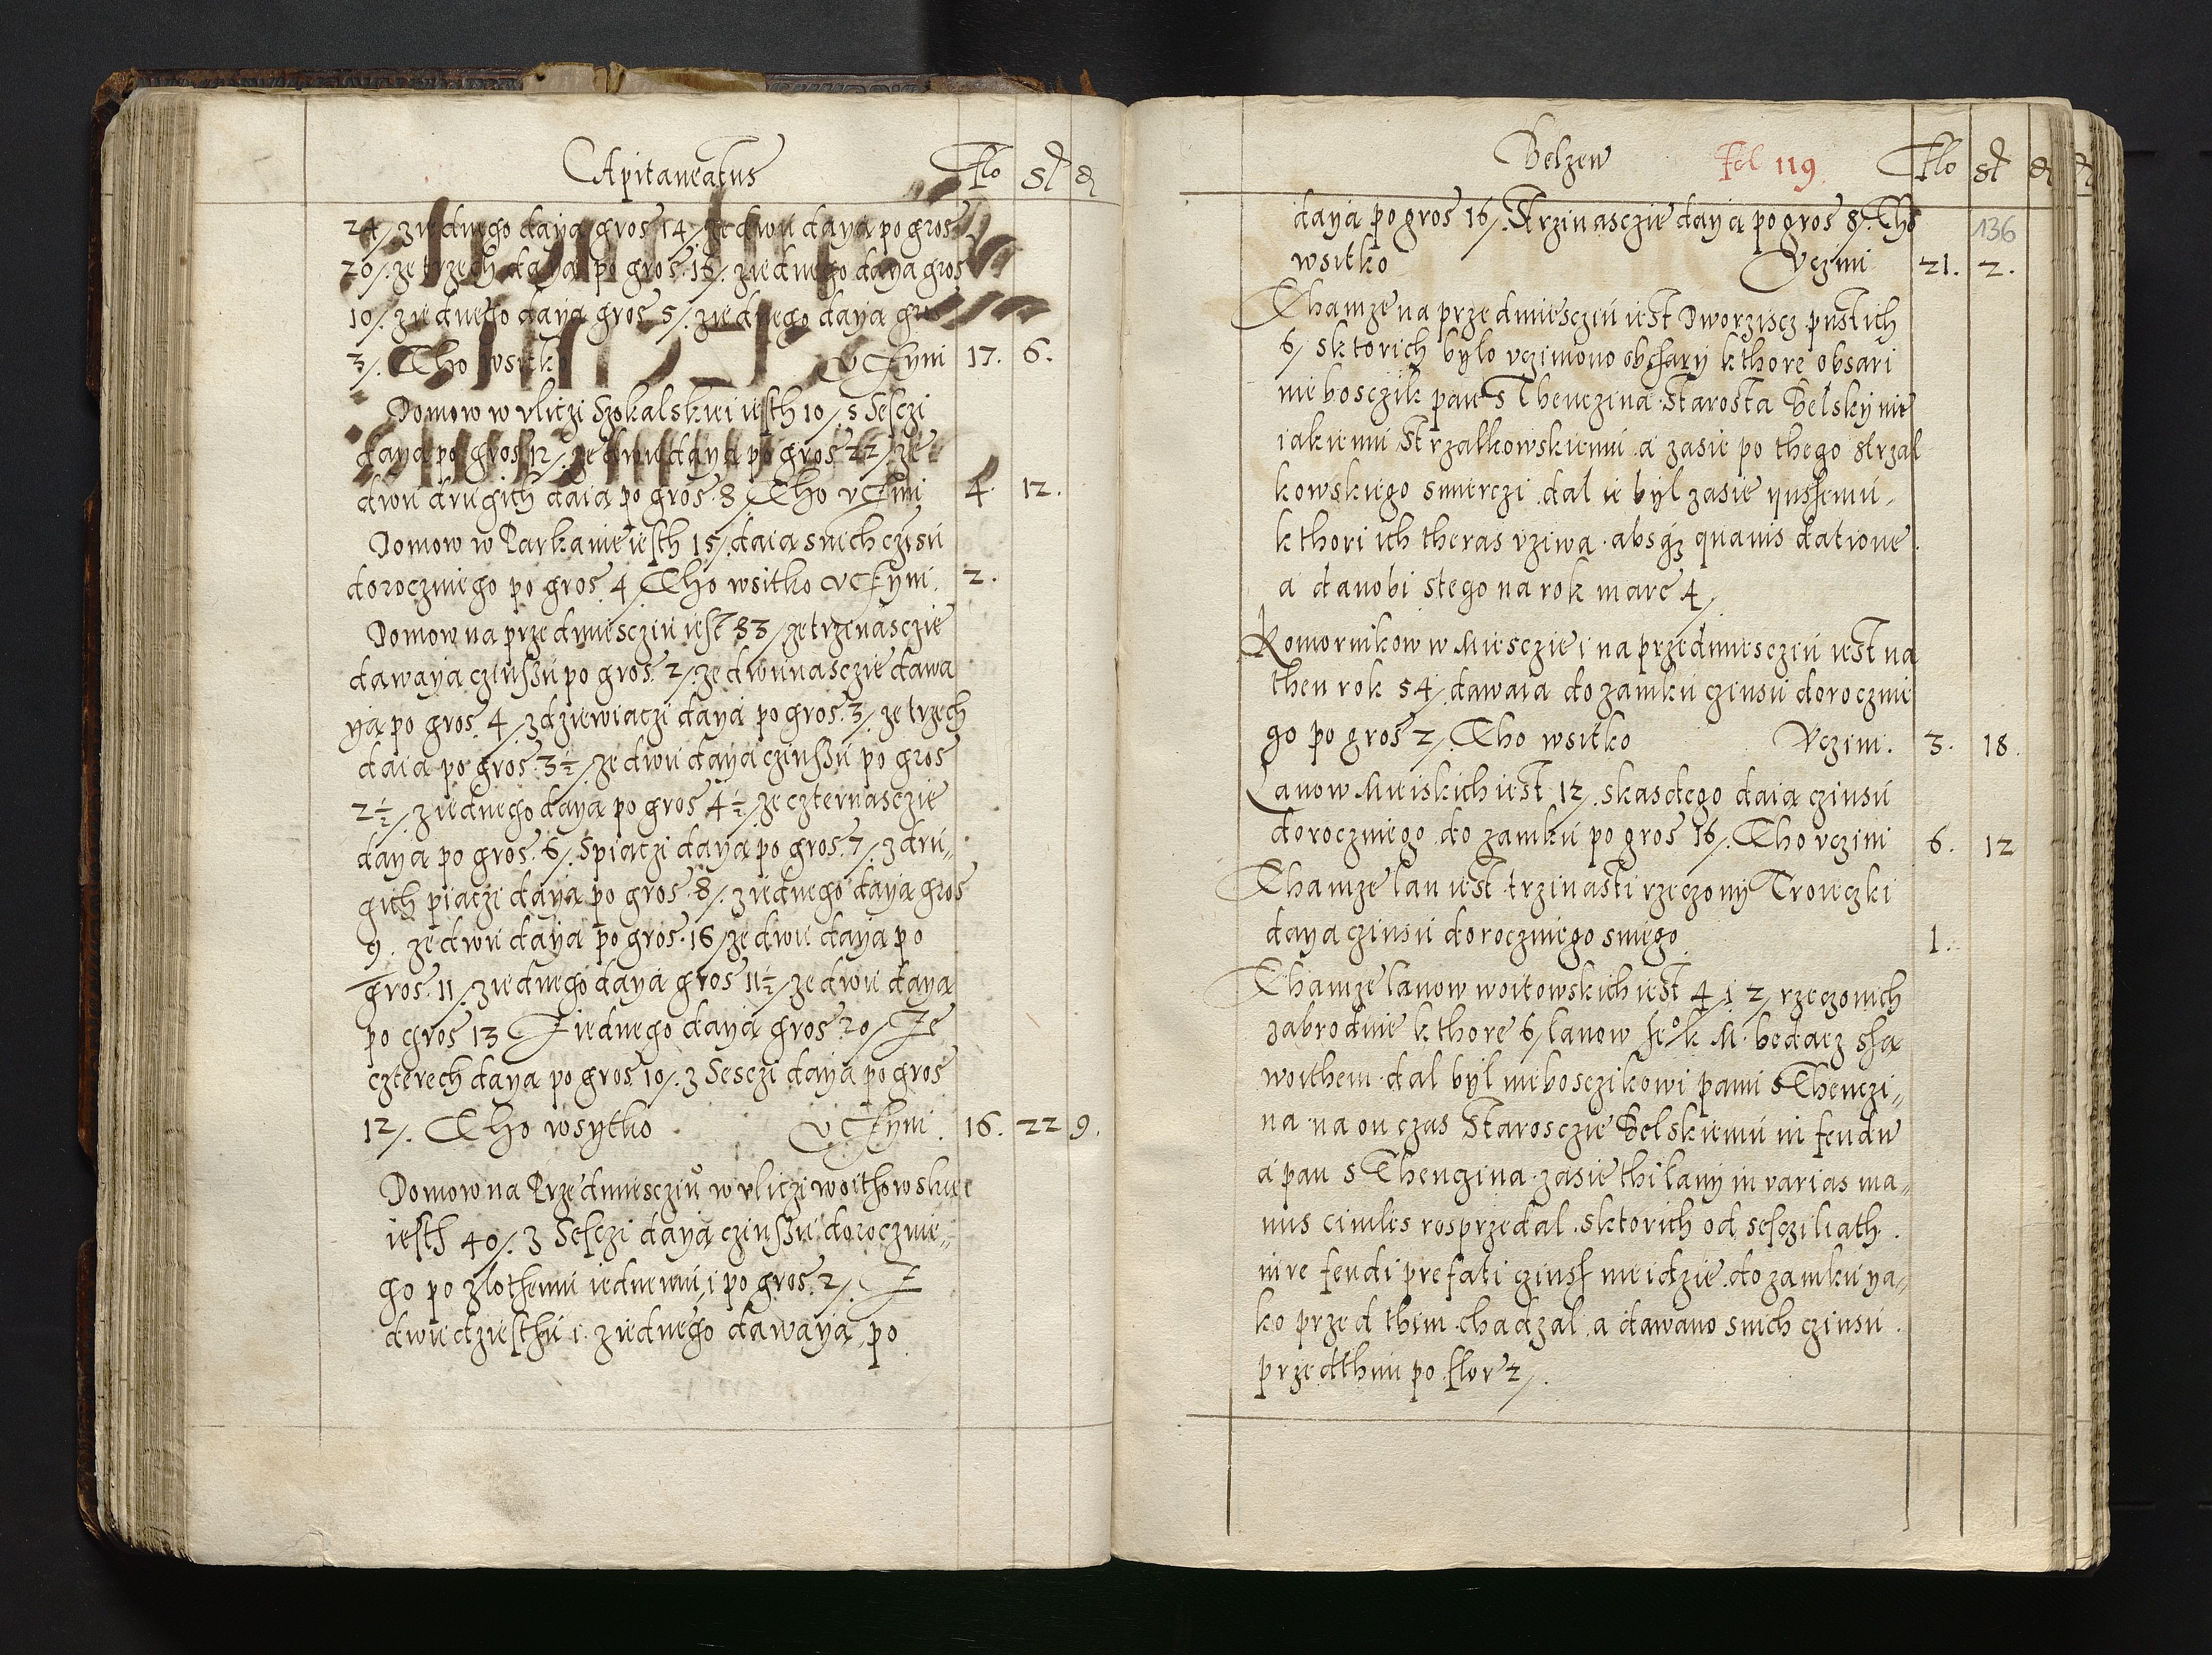 Capitaneatus Flo gr d
24/. z iednego daya gros 14/. ze dwu daya po gros
20/. ze trzech daya po gros 16/. z iednego daya gros
10/. z iednego daya gros 5/. z iednego daya gros
3/. Tho wsitko uczyni 17. 6.
Domow w uliczi Szokalskiei iesth 10/. s Sesczi
daya po gros 12/. ze dwu daya po gros 22/. ze
dwu drugich daia po gros 8 Tho uczini 4. 12.
Domow w Parkanie iesth 15/. daia snich czÿsu
doroczniego po gros 4/ Tho wsitko uczyni. 2.
Domow na przedmiescziu iest 83/ ze trzenasczie
dawaya czinssu po gros 2/. ze dwunasczie dawa
ya po gros 4/. z dziewiaczi daya po gros 3/. ze trzech
daia po gros 3½/. ze dwu daya czinssu po gros
2½/. z iednego daya po gros 4½/. ze czternasczie
daya po gros 6/. S piaczi daya po gros 7/. z dru„
gich piaczi daya po gros 8/. z iednego daya gros
9. ze dwu daya po gros 16/ ze dwu daya po
gros 11/. z iednego daya gros 11½/ ze dwu daya
po gros 13 Z iednego daya gros 20/ Ze
czterech daya po gros 10/. z Sesczi daya po gros
12/. Tho wsytko uczyni. 16. 22 9.
Domow na Przedmiescziu w uliczi woithowskiei
iesth 40/. z Sesczi daya czinssu dorocznie„
go po zlothemu iednemu i po gros 2/. Z
dwudziesthu i z iednego dawaya po
Belzen Fol 119 Flo gr d
136
daya po gros 16/. S trzinasczie daya po gros 8/. Tho
wsitko Uczini 21. 2.
Thamze na przedmiescziu iest Dworziscz pustich
6/ sktorich bylo uczimono obssary kthore obsari
nieboszik pan s Thenczina Starosta Belskÿ nie
iakiemu Strzalkowskiemu a zasie po thego strzal
kowskiego smierczi dal ie byl zasie ynssemu.
kthori ich theras uziwa absqz quauis datione.
a danobi stego na rok marc 4/
Komornikow w Miesczie i na przedmiescziu iest na
then rok 54/. dawaia do zamku czinsu dorocznie
go po gros 2/. Tho wsitko Uczini. 3. 18.
Lanow Mieiskich iest 12/. skasdego daia czinsu
doroczniego do zamku po gros 16/. Tho uczini 6. 12
Thamze lan iest trzinasti rzeczony Troieczki
daya czinsu doroczniego sniego 1.
Thamze lanow woitowskich iest 4 i 2/ rzeczonich
zabrodnie kthore 6/ lanow K M. bedacz
woithem dal byl nieboszikowi panu s Thenczi„
na na on czas Starosczie Belskiemu in feudu
a pan s Thenczina zasie thi lany in varias ma„
nus ciuiles rosprzedal. sktorich od sesczi liath.
iure feudi prefati czinss nie idzie do zamku ya„
ko przed thim chadzal a dawano snich czinsu.
przedthim po flor 2/.